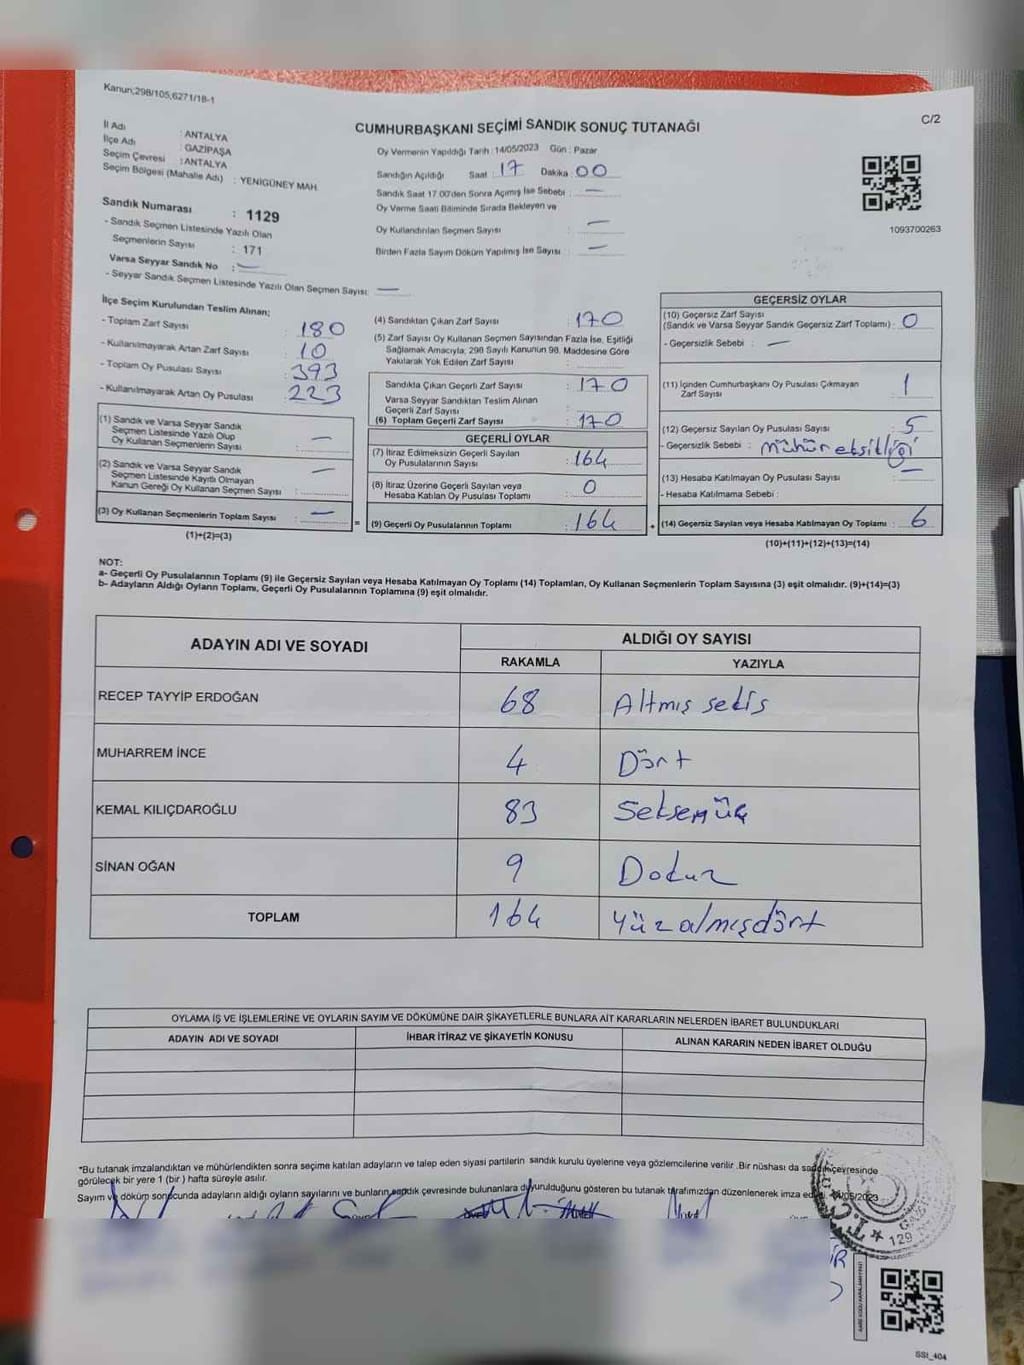 Kanun;298/105,6271/18-1
C/2
CUMHURBAŞKANI SEÇİMİ SANDIK SONUÇ TUTANAĞI
İl Adı : ANTALYA
İlçe Adı : GAZİPAŞA
Seçim Çevresi : ANTALYA
Seçim Bölgesi (Mahalle Adı) : YENİGÜNEY MAH.
Sandık Numarası : 1129
- Sandık Seçmen Listesinde Yazılı Olan
Seçmenlerin Sayısı : 171
Varsa Seyyar Sandık No : —
- Seyyar Sandık Seçmen Listesinde Yazılı Olan Seçmen Sayısı: —
Oy Vermenin Yapıldığı Tarih : 14/05/2023 Gün : Pazar
Sandığın Açıldığı Saat : 17 Dakika : 00
Sandık Saat 17.00'den Sonra Açımış İse Sebebi : —
Oy Verme Saati Bitiminde Sırada Bekleyen ve
Oy Kullandırılan Seçmen Sayısı : —
Birden Fazla Sayım Döküm Yapılmış İse Sayısı : —
1093700263
İlçe Seçim Kurulundan Teslim Alınan;
- Toplam Zarf Sayısı : 180
- Kullanılmayarak Artan Zarf Sayısı : 10
- Toplam Oy Pusulası Sayısı : 393
- Kullanılmayarak Artan Oy Pusulası : 223
(1) Sandık ve Varsa Seyyar Sandık
Seçmen Listesinde Yazılı Olup
Oy Kullanan Seçmenlerin Sayısı : —
(2) Sandık ve Varsa Seyyar Sandık
Seçmen Listesinde Kayıtlı Olmayan
Kanun Gereği Oy Kullanan Seçmen Sayısı : —
(3) Oy Kullanan Seçmenlerin Toplam Sayısı : —
(1)+(2)=(3)
(4) Sandıktan Çıkan Zarf Sayısı : 170
(5) Zarf Sayısı Oy Kullanan Seçmen Sayısından Fazla İse, Eşitliği
Sağlamak Amacıyla; 298 Sayılı Kanunun 98. Maddesine Göre
Yakılarak Yok Edilen Zarf Sayısı :
Sandıkla Çıkan Geçerli Zarf Sayısı : 170
Varsa Seyyar Sandıktan Teslim Alınan
Geçerli Zarf Sayısı :
(6) Toplam Geçerli Zarf Sayısı : 170
GEÇERLİ OYLAR
(7) İtiraz Edilmeksizin Geçerli Sayılan
Oy Pusulalarının Sayısı : 164
(8) İtiraz Üzerine Geçerli Sayılan veya
Hesaba Katılan Oy Pusulası Toplamı : 0
= (9) Geçerli Oy Pusulalarının Toplamı : 164 +
GEÇERSİZ OYLAR
(10) Geçersiz Zarf Sayısı
(Sandık ve Varsa Seyyar Sandık Geçersiz Zarf Toplamı) : 0
- Geçersizlik Sebebi : —
(11) İçinden Cumhurbaşkanı Oy Pusulası Çıkmayan
Zarf Sayısı : 1
(12) Geçersiz Sayılan Oy Pusulası Sayısı : 5
- Geçersizlik Sebebi : Mühür eksikliği
(13) Hesaba Katılmayan Oy Pusulası Sayısı : —
- Hesaba Katılmama Sebebi :
(14) Geçersiz Sayılan veya Hesaba Katılmayan Oy Toplamı : 6
(10)+(11)+(12)+(13)=(14)
NOT:
a- Geçerli Oy Pusulalarının Toplamı (9) ile Geçersiz Sayılan veya Hesaba Katılmayan Oy Toplamı (14) Toplamları, Oy Kullanan Seçmenlerin Toplam Sayısına (3) eşit olmalıdır. (9)+(14)=(3)
b- Adayların Aldığı Oyların Toplamı, Geçerli Oy Pusulalarının Toplamına (9) eşit olmalıdır.
ADAYIN ADI VE SOYADI
ALDIĞI OY SAYISI
RAKAMLA YAZIYLA
RECEP TAYYİP ERDOĞAN 68 Altmış sekis
MUHARREM İNCE 4 Dört
KEMAL KILIÇDAROĞLU 83 Seksenüç
SİNAN OĞAN 9 Dokuz
TOPLAM 164 Yüz almışdört
OYLAMA İŞ VE İŞLEMLERİNE VE OYLARIN SAYIM VE DÖKÜMÜNE DAİR ŞİKAYETLERLE BUNLARA AİT KARARLARIN NELERDEN İBARET BULUNDUKLARI
ADAYIN ADI VE SOYADI İHBAR İTİRAZ VE ŞİKAYETİN KONUSU ALINAN KARARIN NEDEN İBARET OLDUĞU
*Bu tutanak imzalandıktan ve mühürlendikten sonra seçime katılan adayların ve talep eden siyasi partilerin sandık kurulu üyelerine veya gözlemcilerine verilir. Bir nüshası da sandık çevresinde
görülecek bir yere 1 (bir) hafta süreyle asılır.
Sayım ve döküm sonucunda adayların aldığı oyların sayılarını ve bunların sandık çevresinde bulunanlara duyurulduğunu gösteren bu tutanak tarafımızdan düzenlenerek imza edildi. 14/05/2023
129
SSt_404